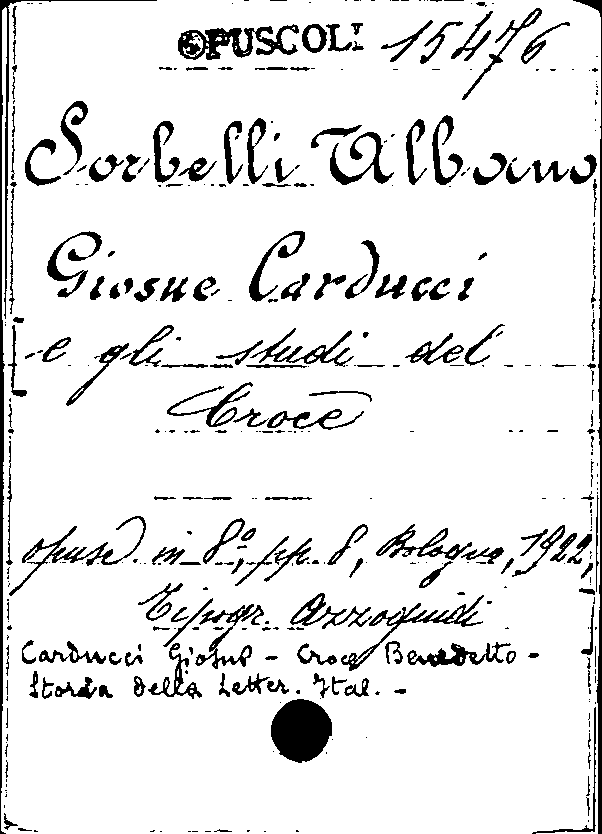 OPUSCOLI 15476
Sorbelli Albano
Giosue Carducci
e gli studi del
Croce
opusc. in 8º, pp. 8, Bologna, 1922,
Tipogr. Azzoguidi
Carducci Giosuè - Croce Benedetto -
Storia della Letter. Ital. -